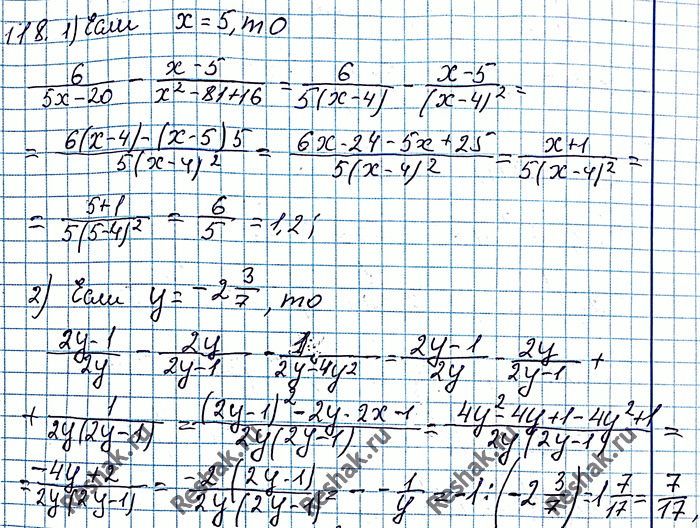 118. 1) Если x = 5, то
6/(5x-20) - (x-5)/(x²-81+16) = 6/(5(x-4)) - (x-5)/(x-4)² =
= (6(x-4)-(x-5)5)/(5(x-4)²) = (6x-24-5x+25)/(5(x-4)²) = (x+1)/(5(x-4)²) =
= (5+1)/(5(5-4)²) = 6/5 = 1,2;
2) Если y = -2 3/7, то
(2y-1)/2y - 2y/(2y-1) - 1/(2y-4y²) = (2y-1)/2y - 2y/(2y-1) +
+ 1/(2y(2y-1)) = ((2y-1)²-2y·2x-1)/(2y(2y-1)) = (4y²-4y+1-4y²+1)/(2y(2y-1)) =
= (-4y+2)/(2y(2y-1)) = -2(2y-1)/(2y(2y-1)) = -1/y = -1:(-2 3/7) = 1 7/17 = 7/17,
Reshak.ru Reshak.ru Reshak.ru Reshak.ru